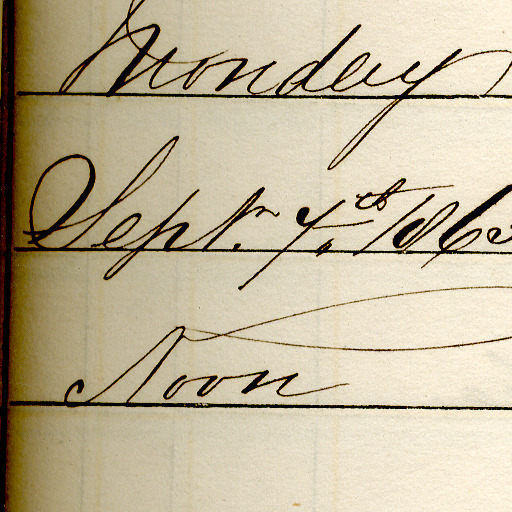 Monday
Sept. 7th 186
Noon